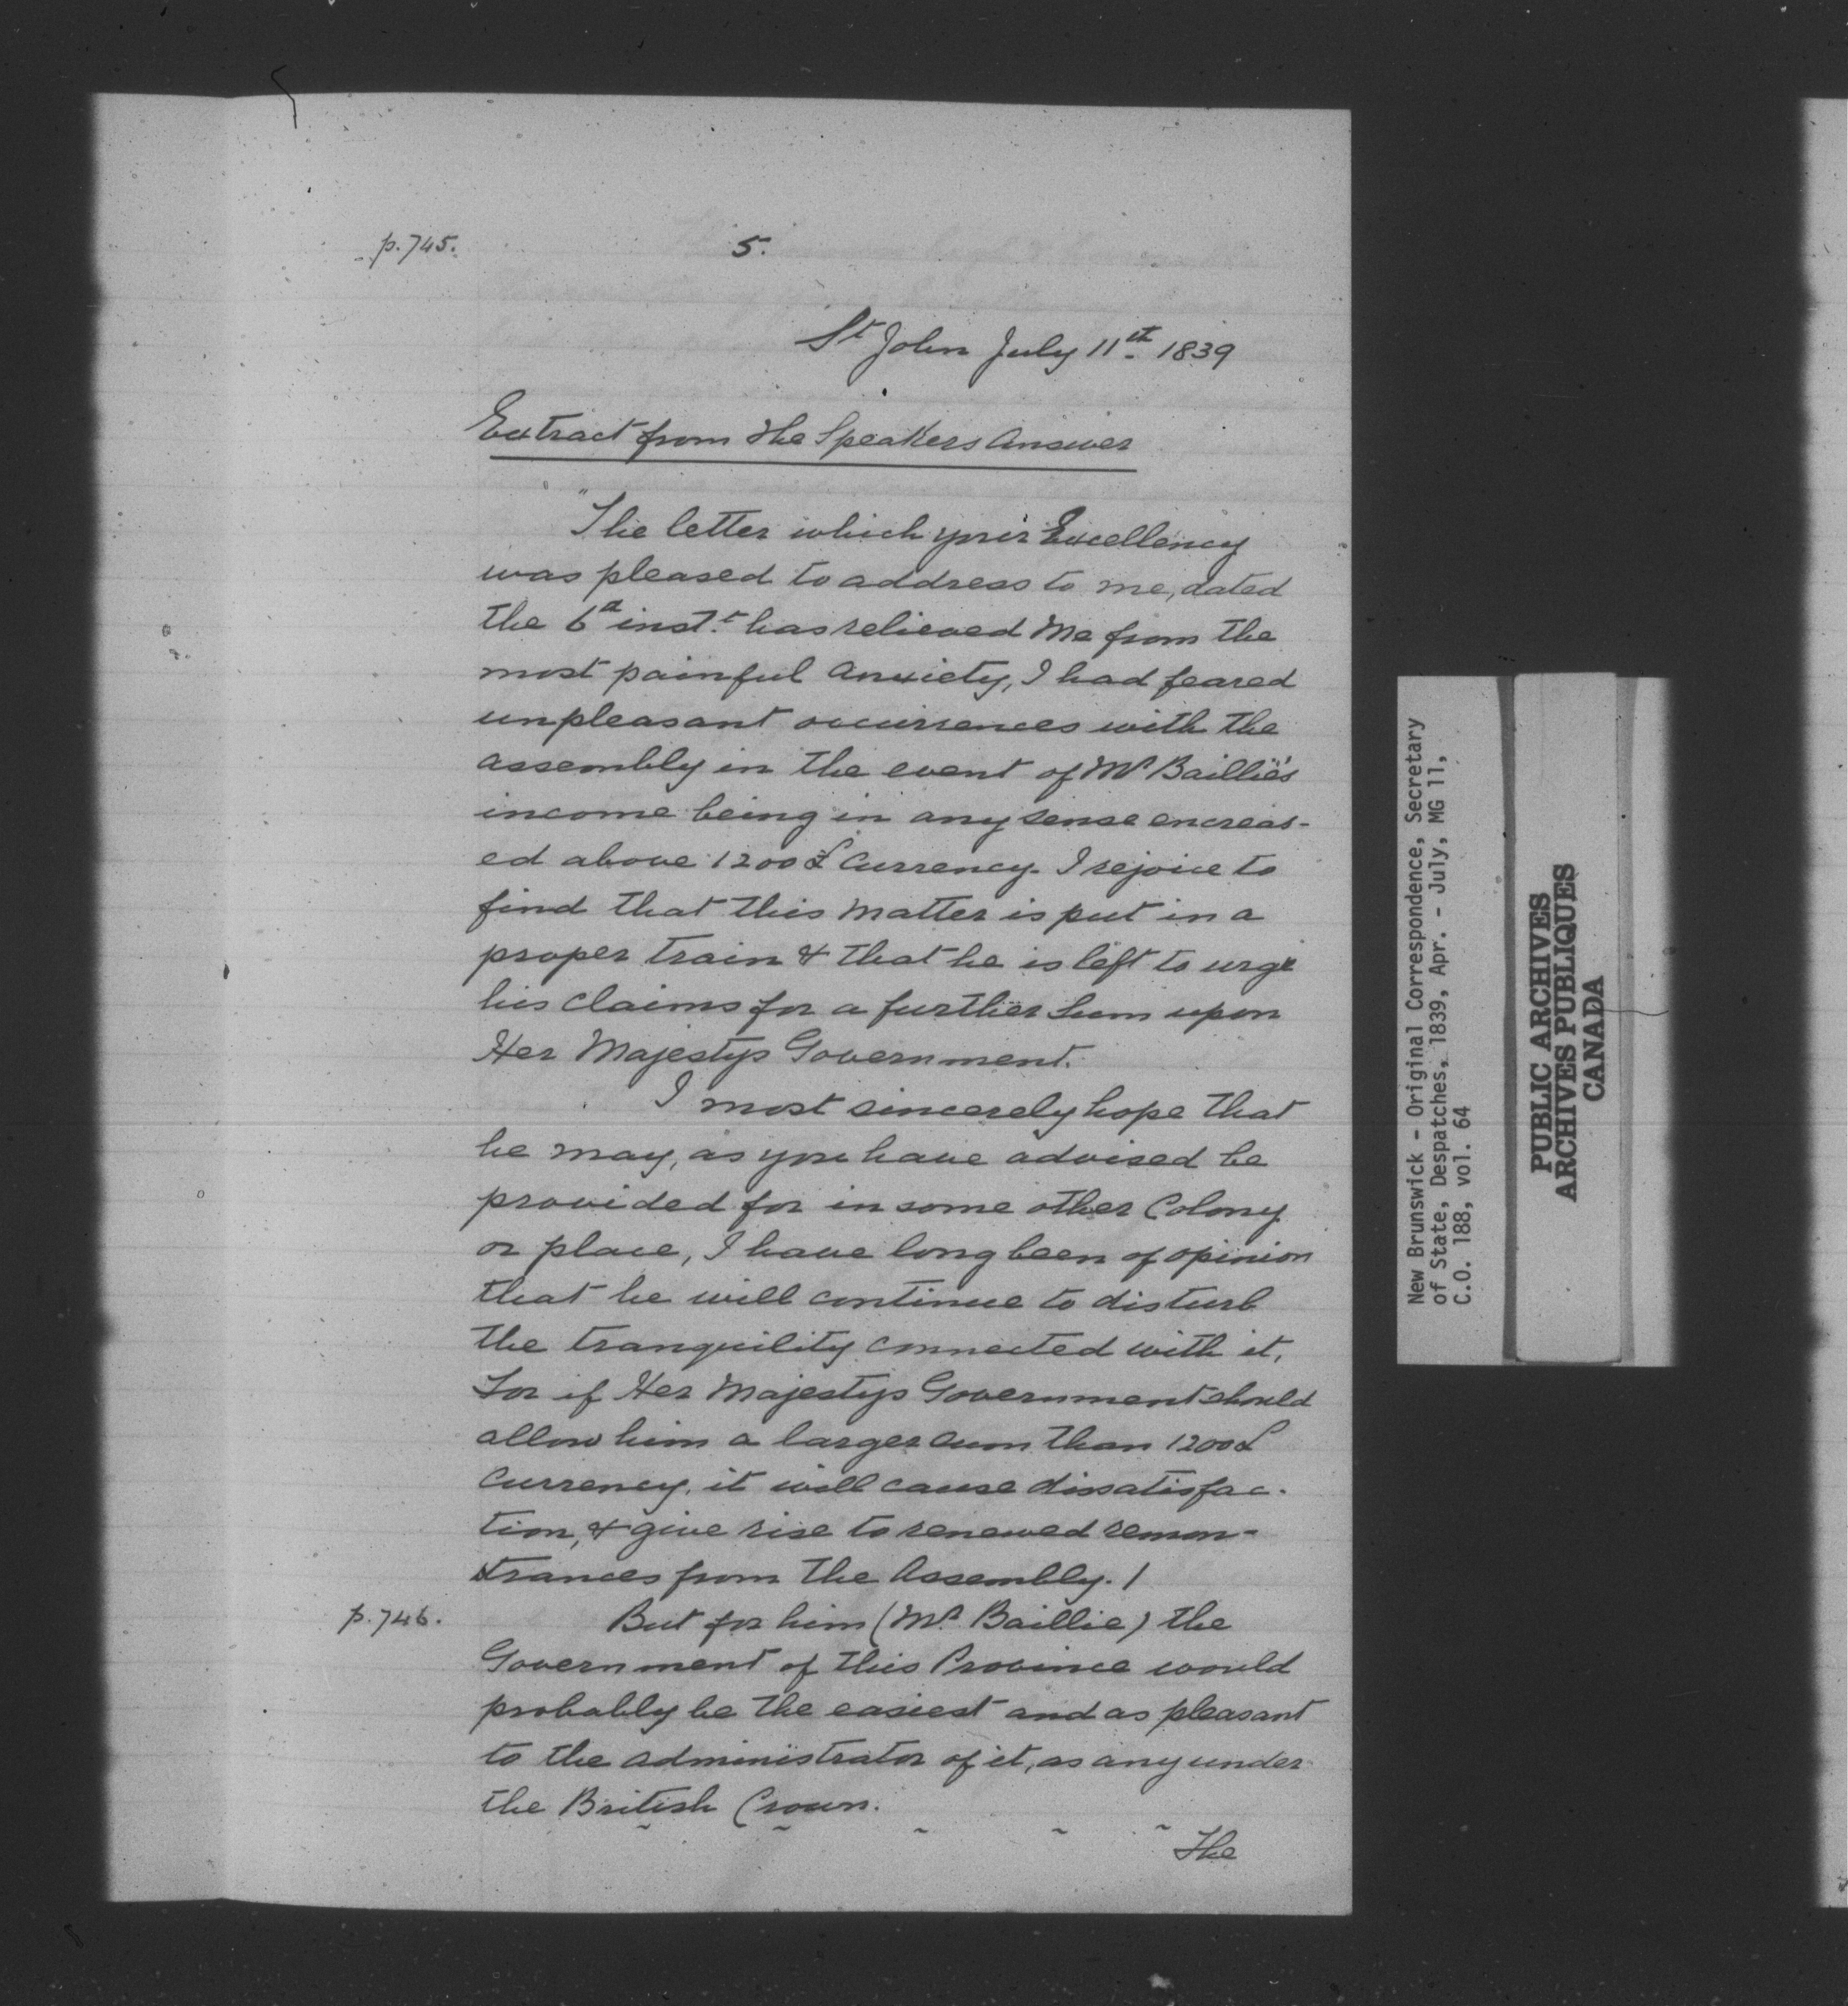 p.745.
5.
St John July 11th 1839
Extract from the Speakers Answer
"The letter which your Excellency
was pleased to address to me, dated
the 6th inst.t has relieved me from the
most painful anxiety, I had feared
unpleasant occurrences with the
assembly in the event of Mr Baillie's
income being in any sense encreas-
ed above 1200£ Currency. I rejoice to
find that this matter is put in a
proper train & that he is left to urge
his claims for a further sum upon
Her Majestys Government.
I most sincerely hope that
he may, as you have advised be
provided for in some other Colony
or place, I have long been of opinion
that he will continue to disturb
the tranquility connected with it,
For if Her Majestys Government should
allow him a larger sum than 1200£
Currency, it will cause dissatisfac-
tion, & give rise to renewed remon-
strances from the Assembly. /
p.746.
But for him (Mr. Baillie) the
Government of this Province would
probably be the easiest and as pleasant
to the administrator of it, as any under
the British Crown.
The
New Brunswick - Original Correspondence, Secretary
of State, Despatches, 1839, Apr. - July, MG 11,
C.O. 188, vol. 64
PUBLIC ARCHIVES
ARCHIVES PUBLIQUES
CANADA